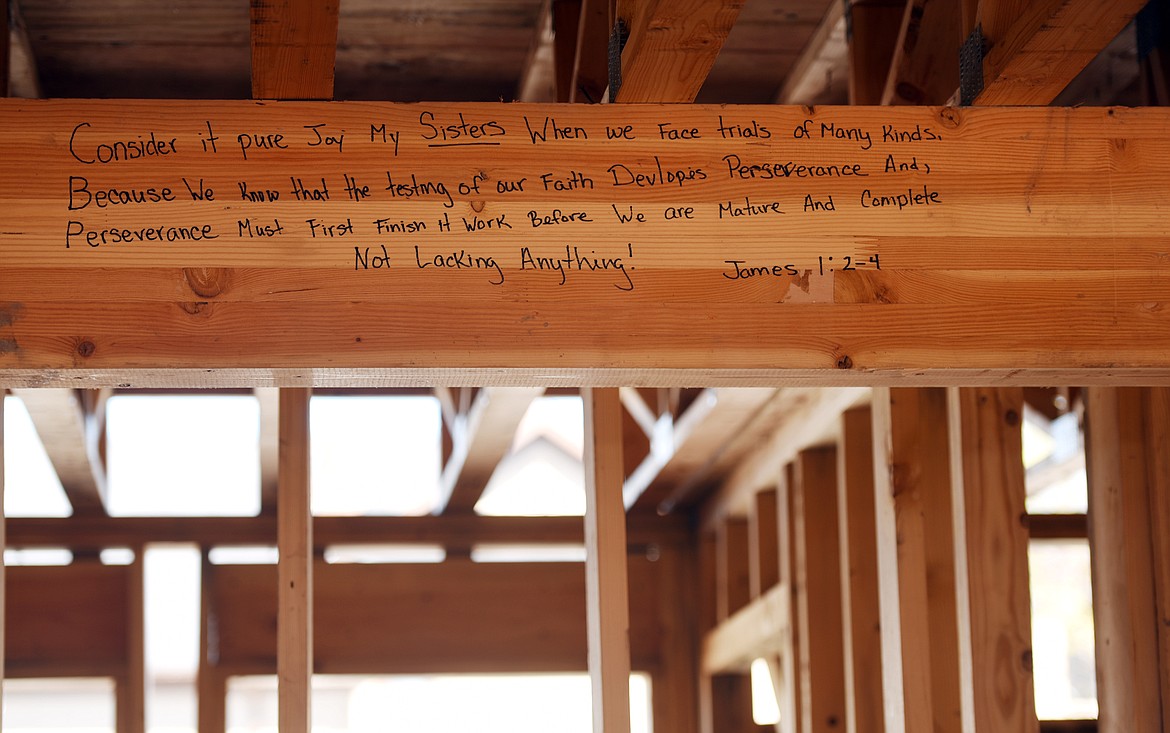 Consider it pure Joy My Sisters When we Face trials of Many Kinds.
Because We Know that the testing of our Faith Devlopes Perseverance And,
Perseverance Must First Finish it Work Before We are Mature And Complete
Not Lacking Anything! James 1:2-4